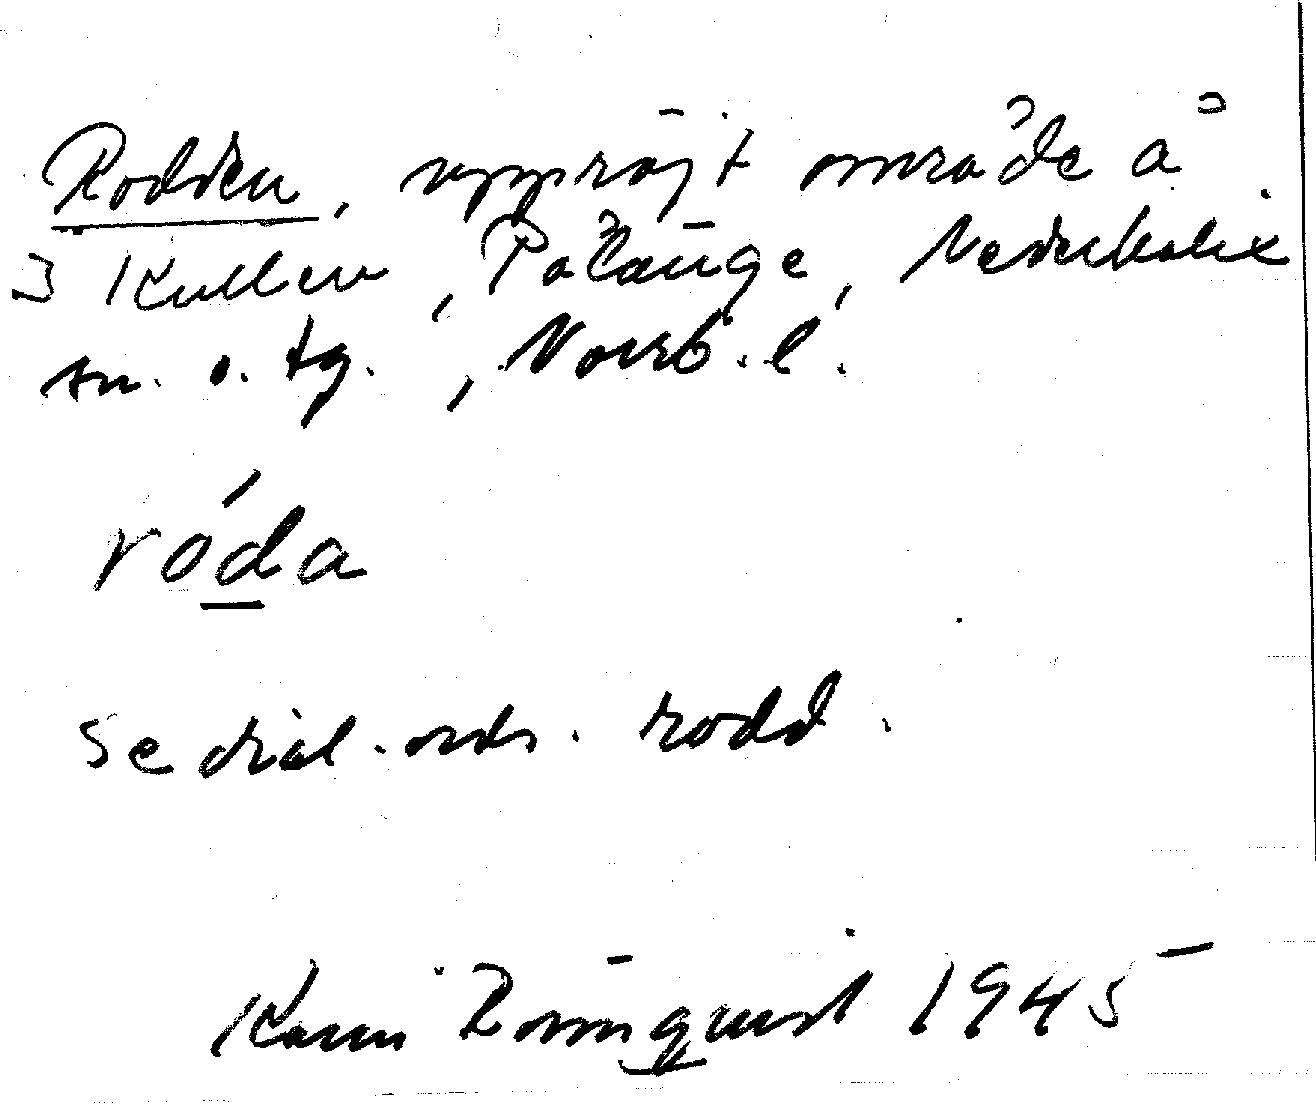 Rodden, uppröjt område å
Kullen, Påläng, Nederkalix
sn. o. tg., Norrb. l.
róda
Se dial. ordn. rodd.
Karin Rönnquist 1945